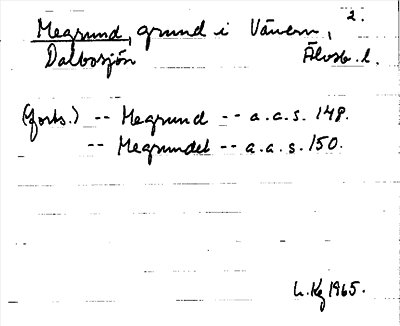 2.
Megrund, grund i Vänern,
Dalbosjön Älvsb. l.
(forts.) -- Megrund -- a.a.s. 148.
-- Megrundet -- a.a.s. 150.
L. Kg 1965.